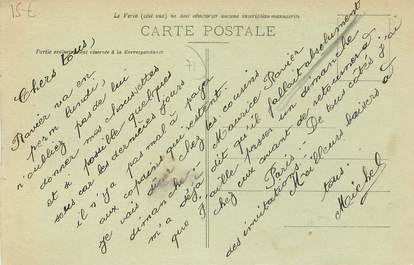 15€
Le Recto (côté vue) ne doit contenir aucune inscription manuscrite
CARTE POSTALE
Partie exclusivement réservée à la Correspondance
71
Chers tous,
Ravier va en
perm lundi,
n'oubliez pas de lui
donner mes chaussettes
et si possible quelques
sous car les derniers jours
il n'y a pas mal à payer
aux copains qui restent.
Je vais chez les cousins
dimanche déjà Maurice Ravier
m'a dit qu'il fallait absolument
que j'aille passer un dimanche
chez eux avant de retourner à
Paris. – De tous côtés j'ai
des invitations. –
Meilleurs baisers à
tous.
Michel